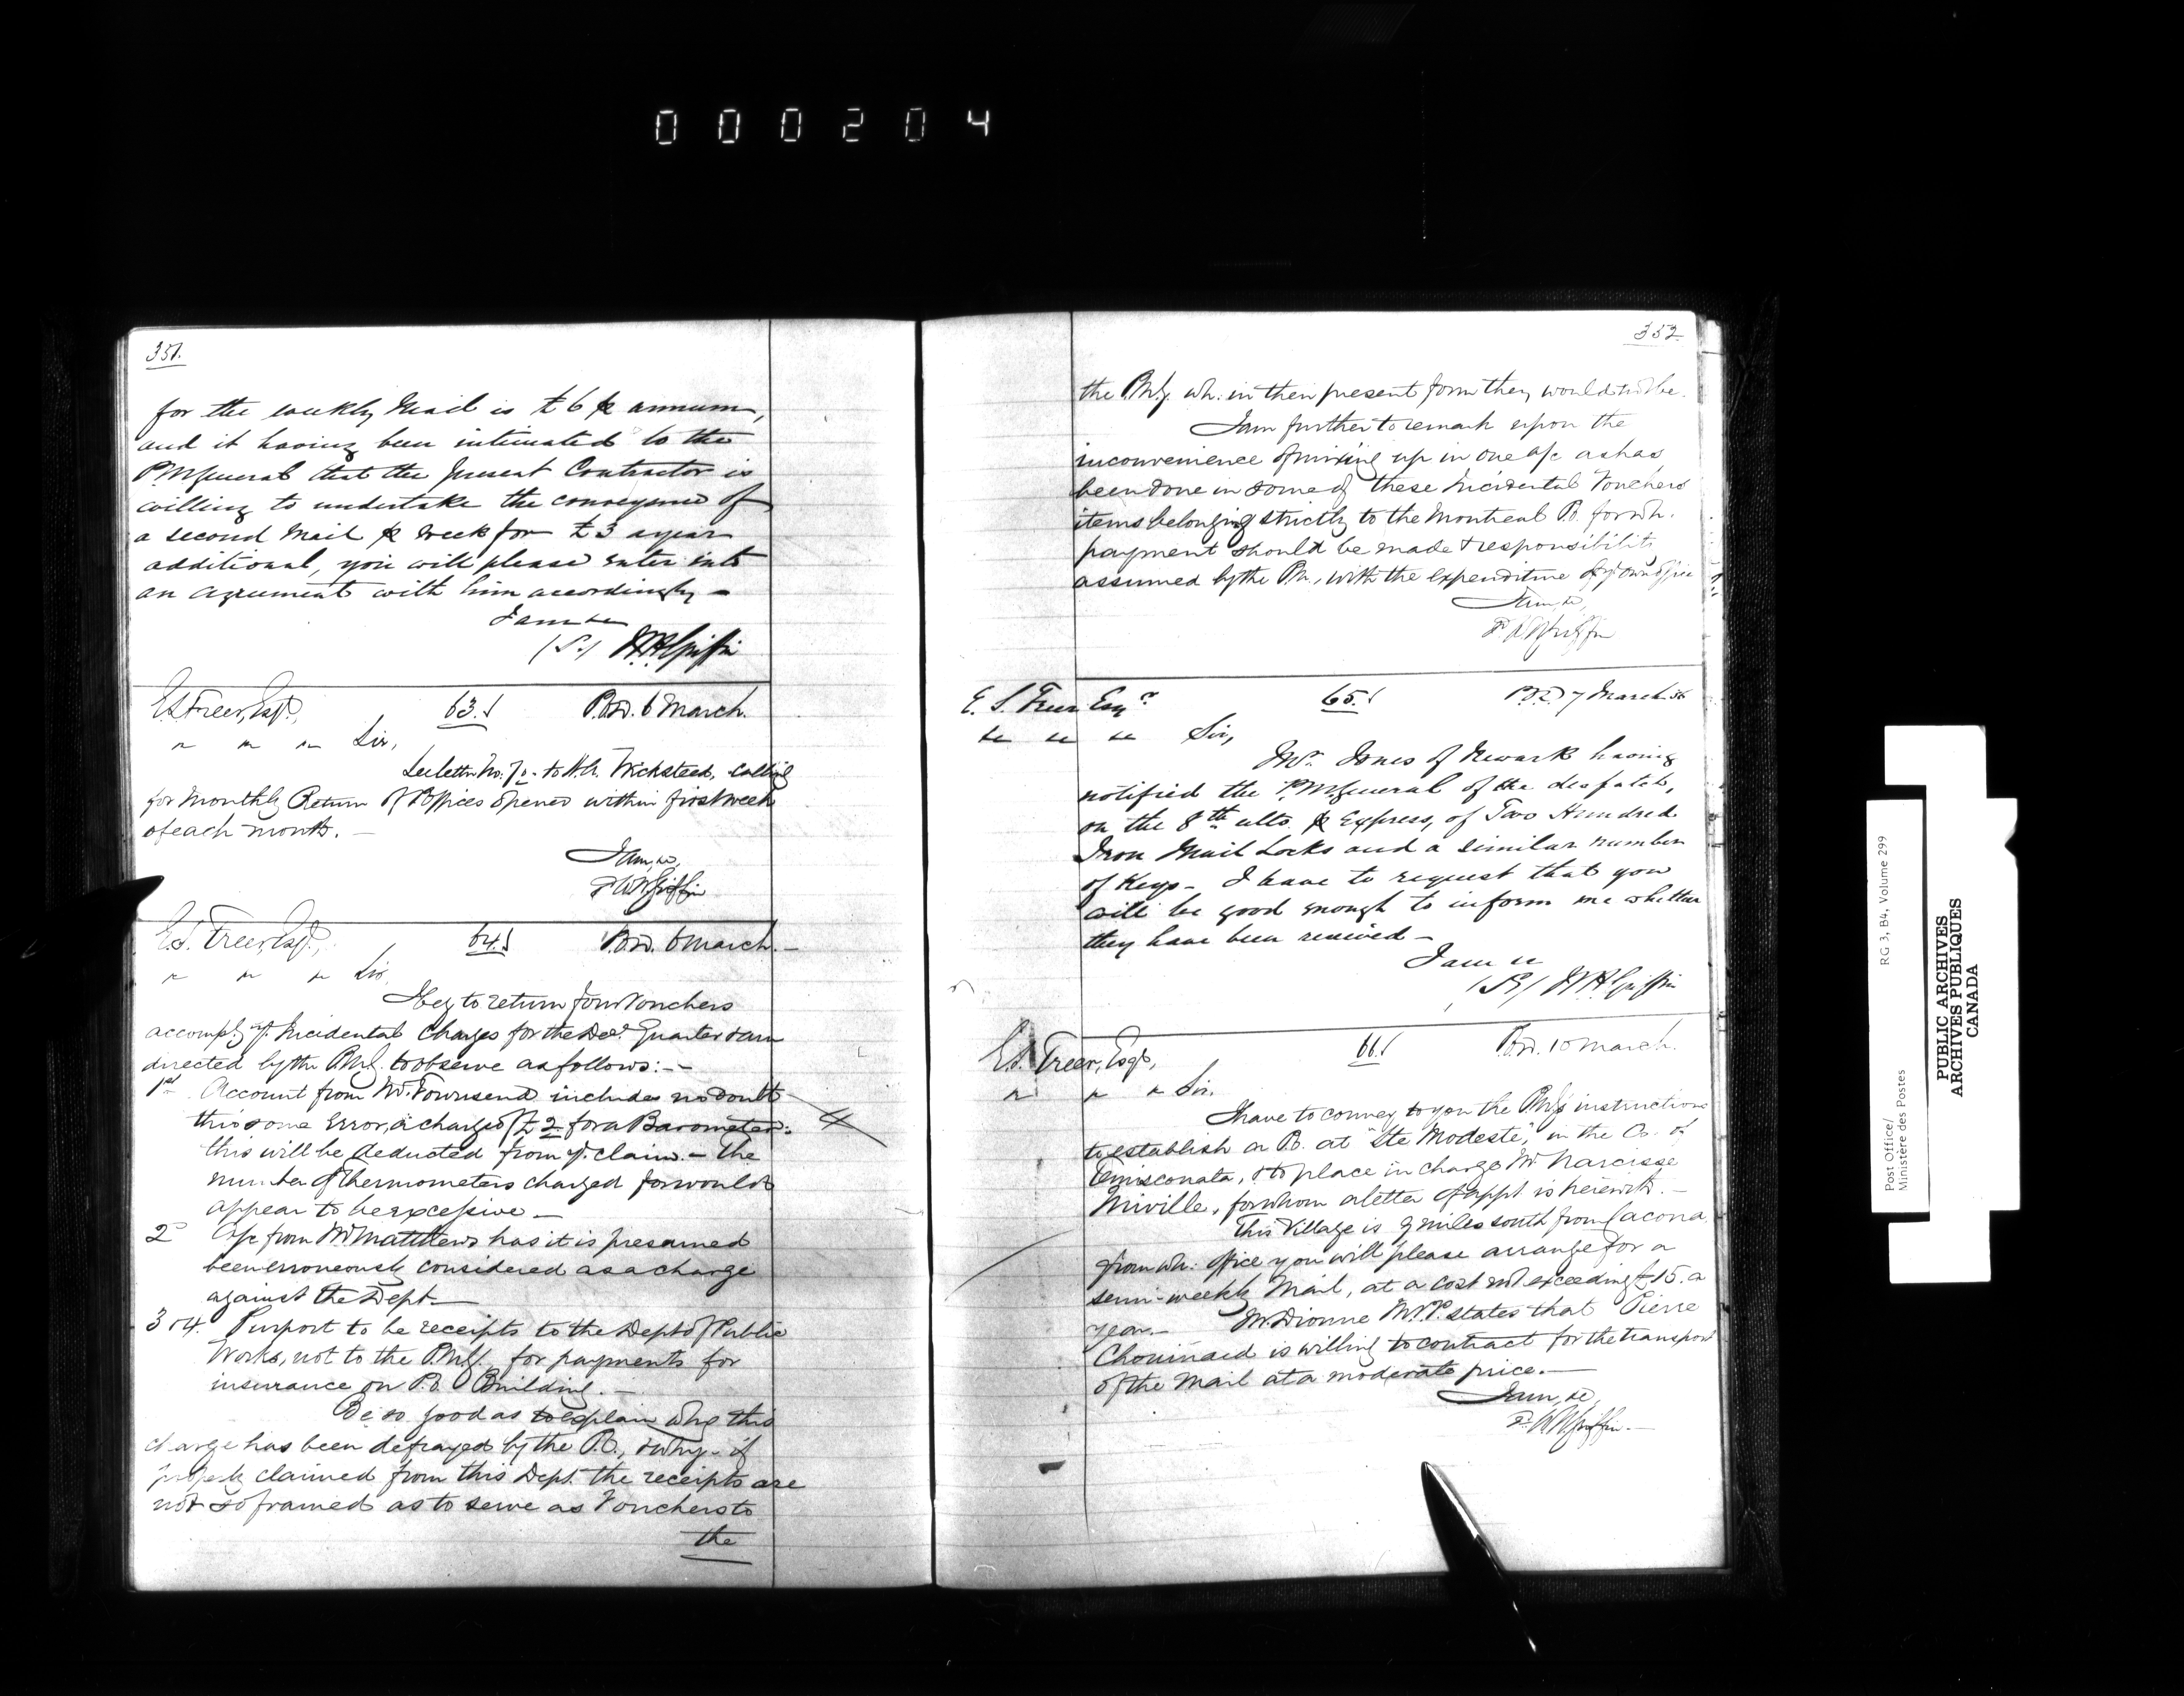 000204
351.
for the weekly Mail is £6 p annum,
and it having been intimated to the
P.M General that the present Contractor is
willing to undertake the conveyance of
a second Mail p week for £3 a year
additional, you will please enter into
an agreement with him accordingly -
I am &c
(S.) W.H. Griffin
E.S. Freer, Esqr., 63. P.O.D. 6 March.
" " " Sir,
See letter No. to H.A. Wicksteed, calling
for Monthly Return of Offices opened within first week
of each month. -
I am, &c,
W.H. Griffin
E.S. Freer, Esqr., 64. P.O.D. 6 March. -
" " " Sir,
I beg to return four Vouchers
accompg. yr. Incidental Charges for the Decr. Quarter & am
directed by the P.M.G. to observe as follows: - -
1st Account from Mr. Townsend includes no doubt
thro' some Error, a charge of £2 for a Barometer:
this will be deducted from yr. claim. - The
number of thermometers charged for would
appear to be excessive -
2d A/c from Mr. Matthews has it is presumed
been erroneously considered as a charge
against the Dept. -
3 & 4. Purport to be receipts to the Dept of Public
Works, not to the P.M.G. for payments for
insurance on P.O. Building. -
Be so good as to explain why this
charge has been defrayed by the P.O., & why - if
properly claimed from this Dept. the receipts are
not so framed as to serve as Vouchers to
the
352
the P.M.G. wh. in their present form they would not be.
I am further to remark upon the
inconvenience of mixing up in one a/c as has
been done in some of these Incidental Vouchers
items belonging strictly to the Montreal P.O. for wh.
payment should be made & responsibility
assumed by the P.M., with the expenditure of yr. own Office
I am, &c,
W.H. Griffin
E. S. Freer Esqr 65. P.O.D. 7 March 56
" " " Sir,
Mr. Jones of Newark having
notified the P.M General of the despatch,
on the 8th ulto. p Express, of Two Hundred
Iron Mail Locks and a similar number
of Keys - I have to request that you
will be good enough to inform me whether
they have been received -
I am &c
(S) W H Griffin
E.S. Freer, Esqr., 66. P.O.D. 10 March.
" " " Sir,
I have to convey to you the P.M.G's instructions
to establish a P.O. at "Ste Modeste", in the Co. of
Temisconata, & to place in charge Mr. Narcisse
Miville, for whom a letter of appt is herewith. -
This Village is 9 miles south from Cacona
from wh. Office you will please arrange for a
semi-weekly Mail, at a cost not exceeding £15. a
year. - Mr. Dionne M.P.P. states that Pierre
Chouinard is willing to contract for the transport
of the Mail at a moderate price. -
I am, &c,
W.H. Griffin. -
Post Office/
Ministère des Postes
RG 3, B4, Volume 299
PUBLIC ARCHIVES
ARCHIVES PUBLIQUES
CANADA